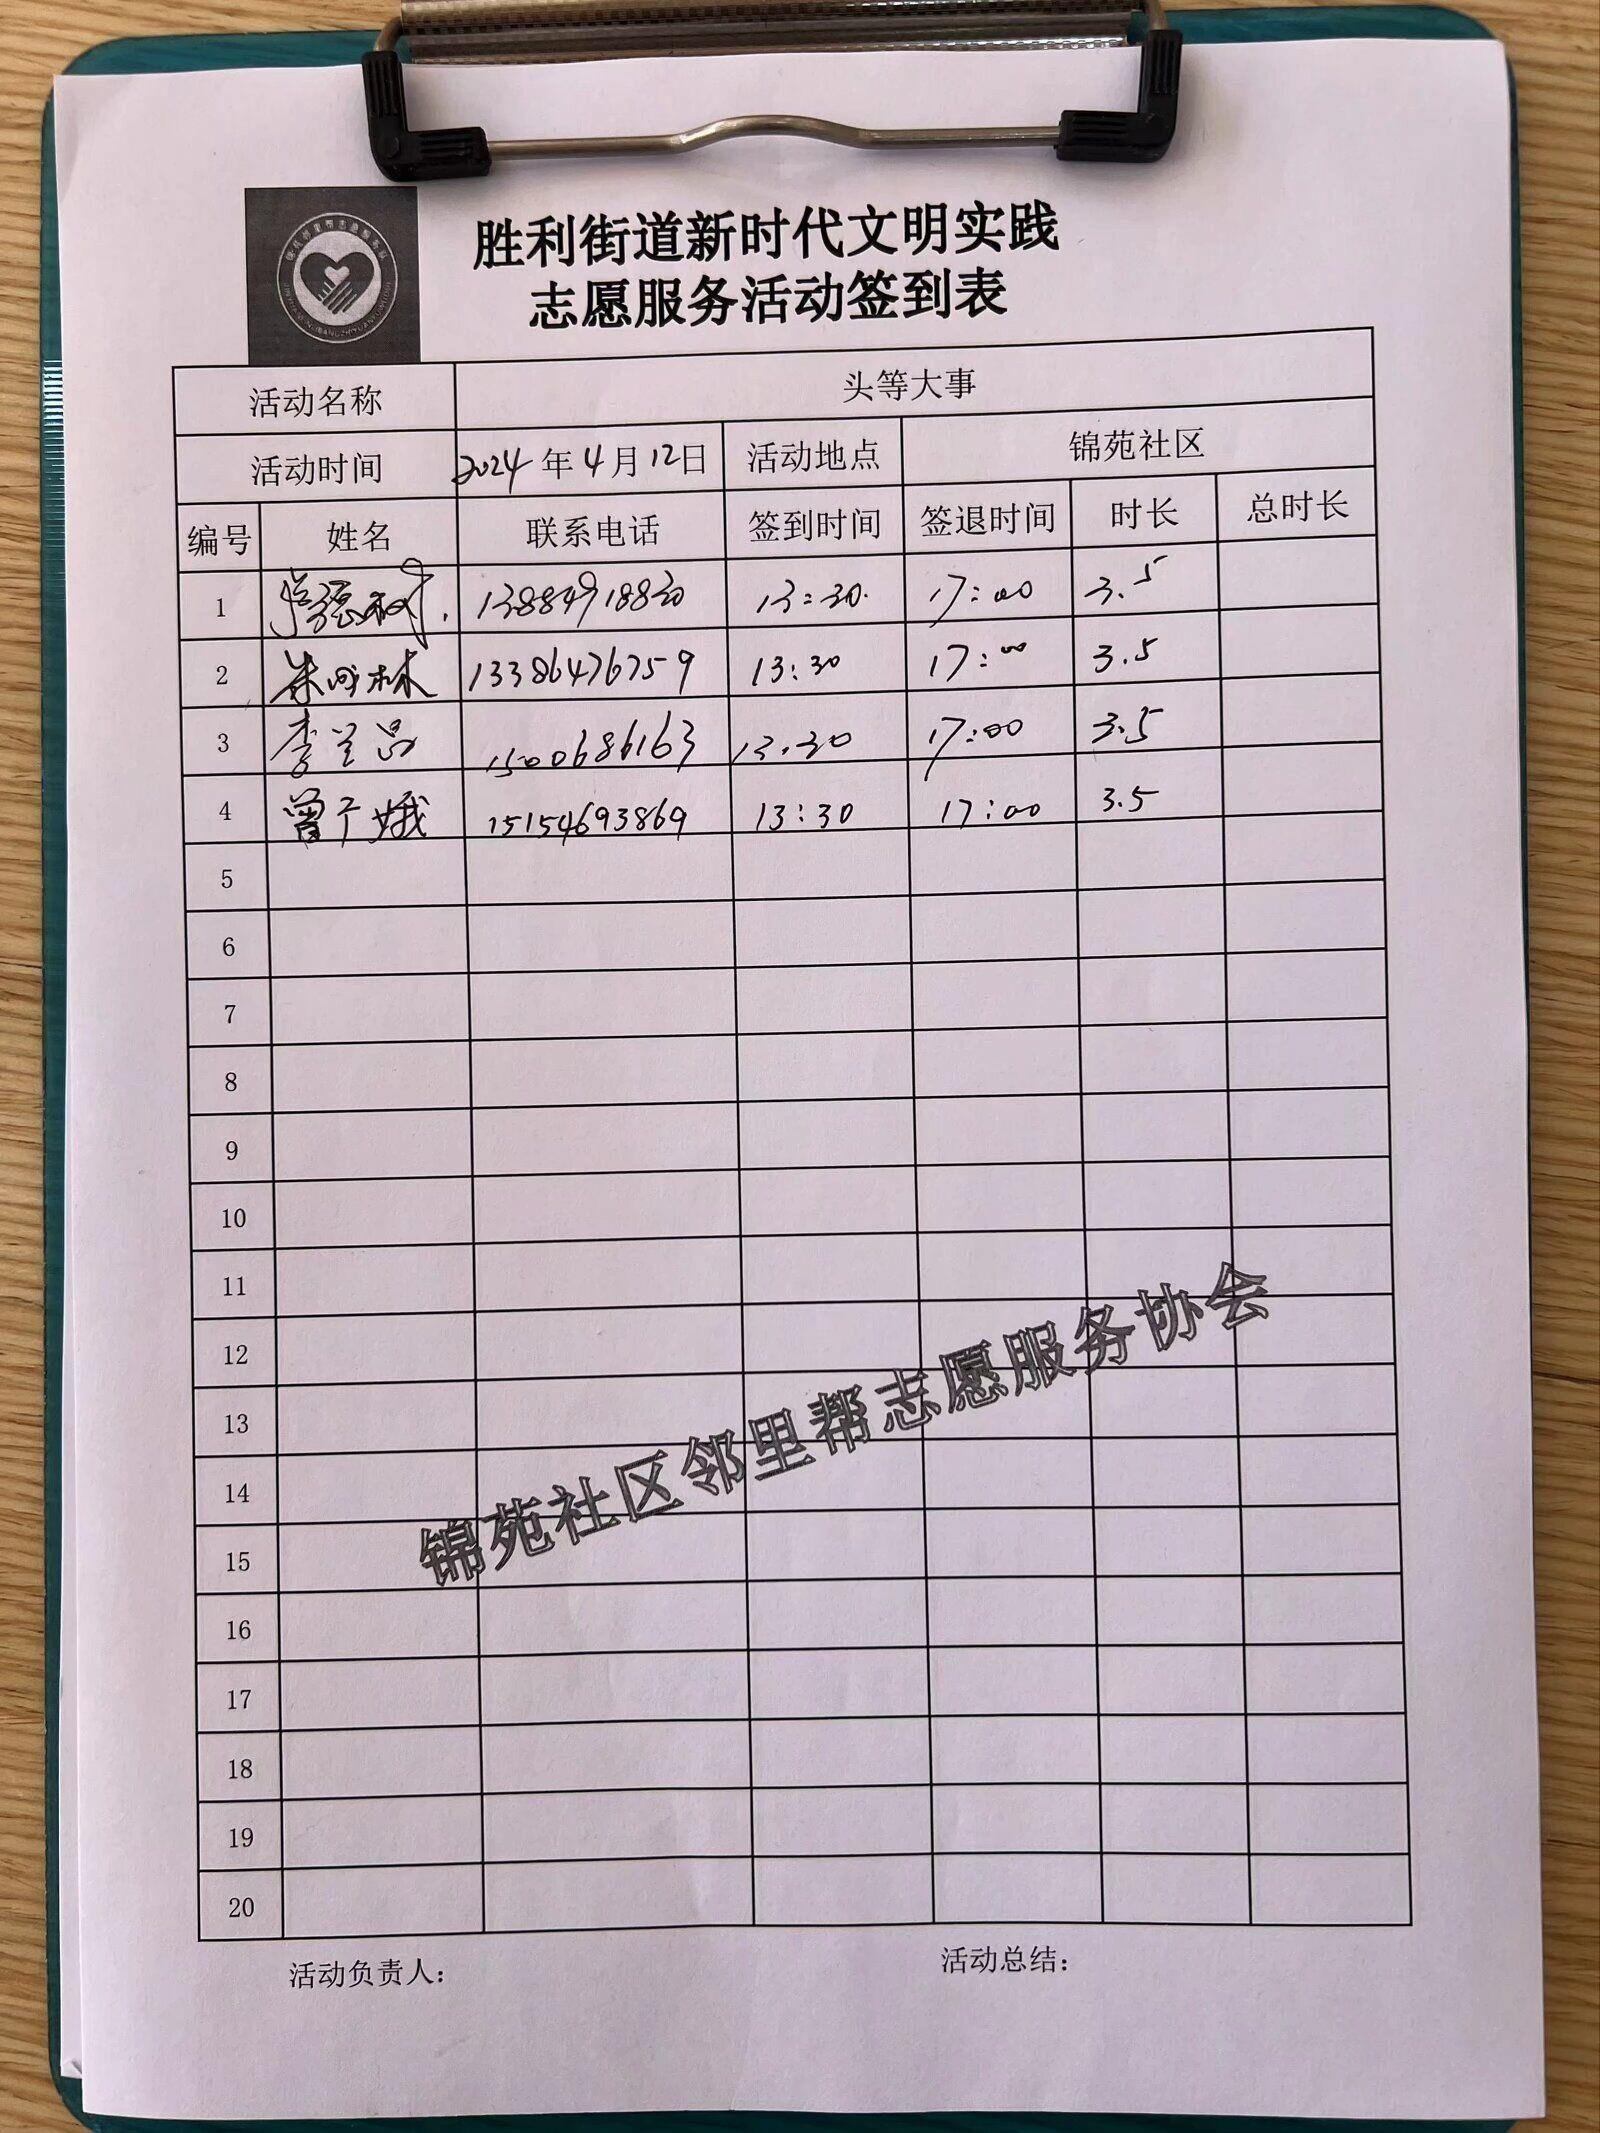 胜利街道新时代文明实践
志愿服务活动签到表
活动名称 头等大事
活动时间 2024年4月12日 活动地点 锦苑社区
编号 姓名 联系电话 签到时间 签退时间 时长 总时长
1 13884918830 13:30 17:00 3.5
2 朱成林 13386476759 13:30 17:00 3.5
3 李兰昌 1500686163 13:30 17:00 3.5
4 曾广娥 15154693869 13:30 17:00 3.5
5
6
7
8
9
10
11
12
13
14
15
16
17
18
19
20
锦苑社区邻里帮志愿服务协会
活动负责人: 活动总结: